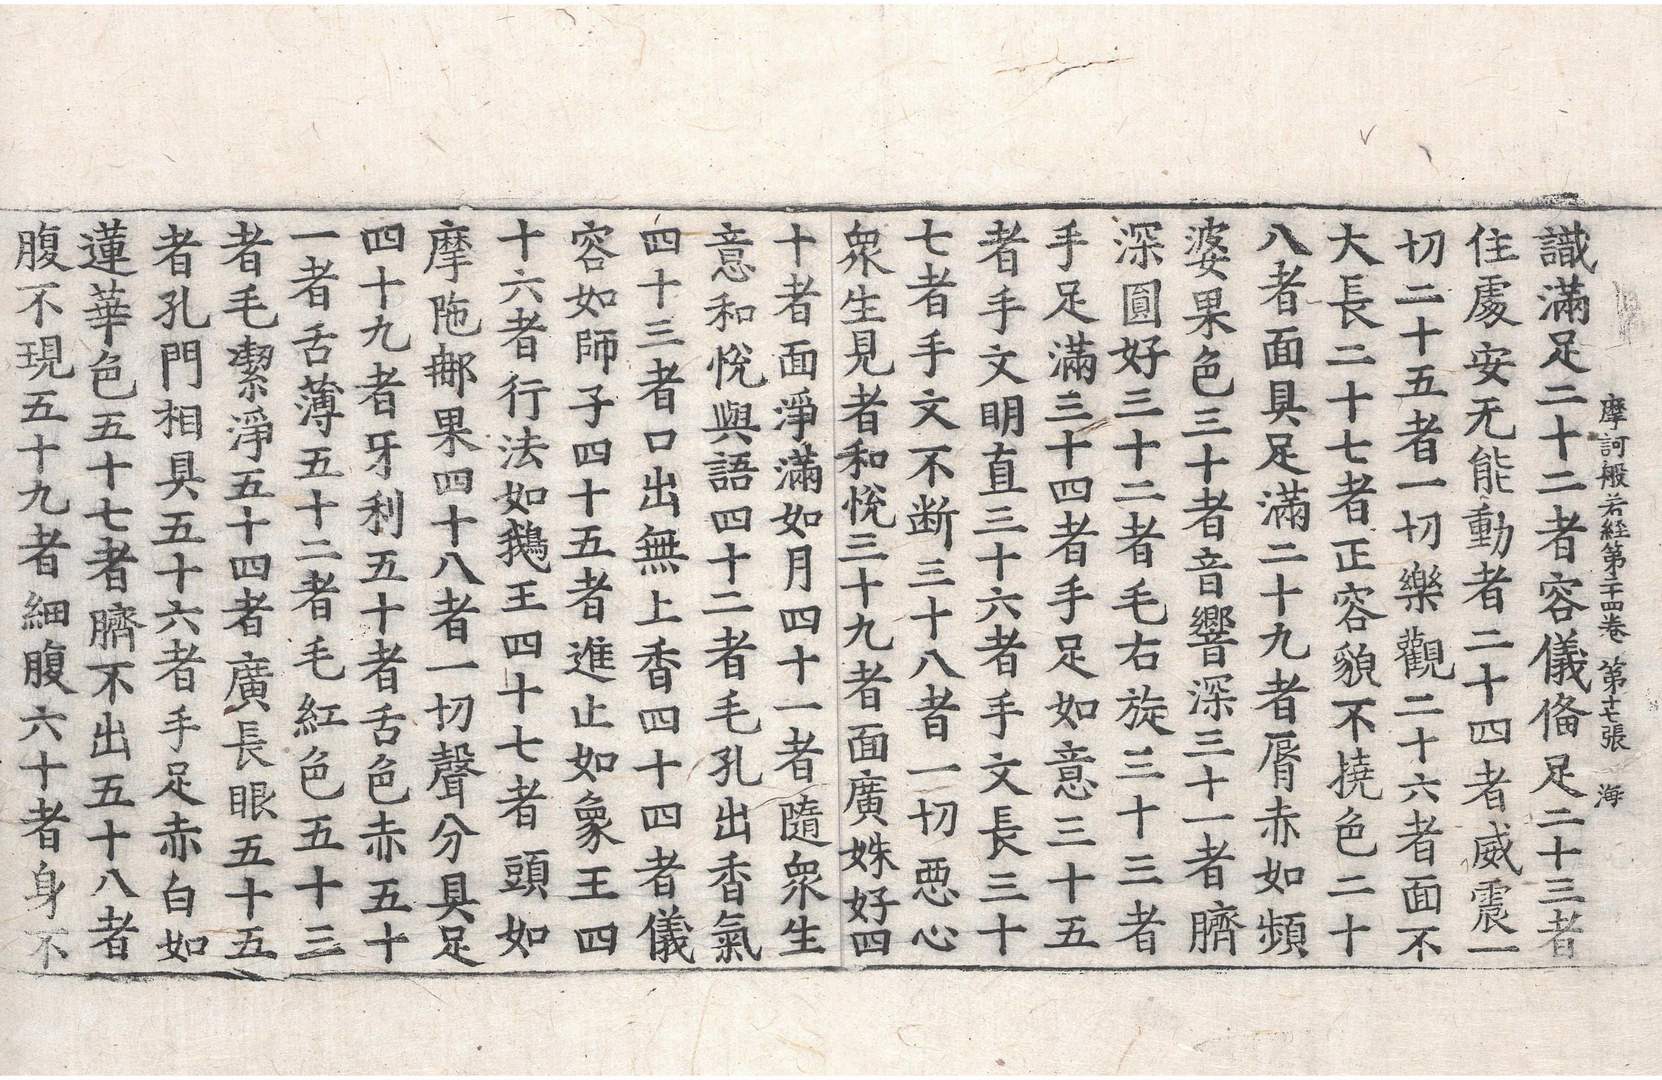 摩訶般若経第二十四卷　第十七張　海
識滿足二十二者容儀俻足二十三者
住處安无能動者二十四者威震一
切二十五者一切樂觀二十六者面不
大長二十七者正容貌不撓色二十
八者面具足滿二十九者脣赤如頻
婆果色三十者音響深三十一者臍
深圓好三十二者毛右旋三十三者
手足滿三十四者手足如意三十五
者手文明直三十六者手文長三十
七者手文不断三十八者一切惡心
衆生見者和悅三十九者面廣姝好四
十者面淨滿如月四十一者隨衆生
意和悅與語四十二者毛孔出香氣
四十三者口出無上香四十四者儀
容如師子四十五者進止如象王四
十六者行法如鵝王四十七者頭如
摩陁郍果四十八者一切聲分具足
四十九者牙利五十者舌色赤五十
一者舌薄五十二者毛紅色五十三
者毛潔淨五十四者廣長眼五十五
者孔門相具五十六者手足赤白如
蓮華色五十七者臍不出五十八者
腹不現五十九者細腹六十者身不